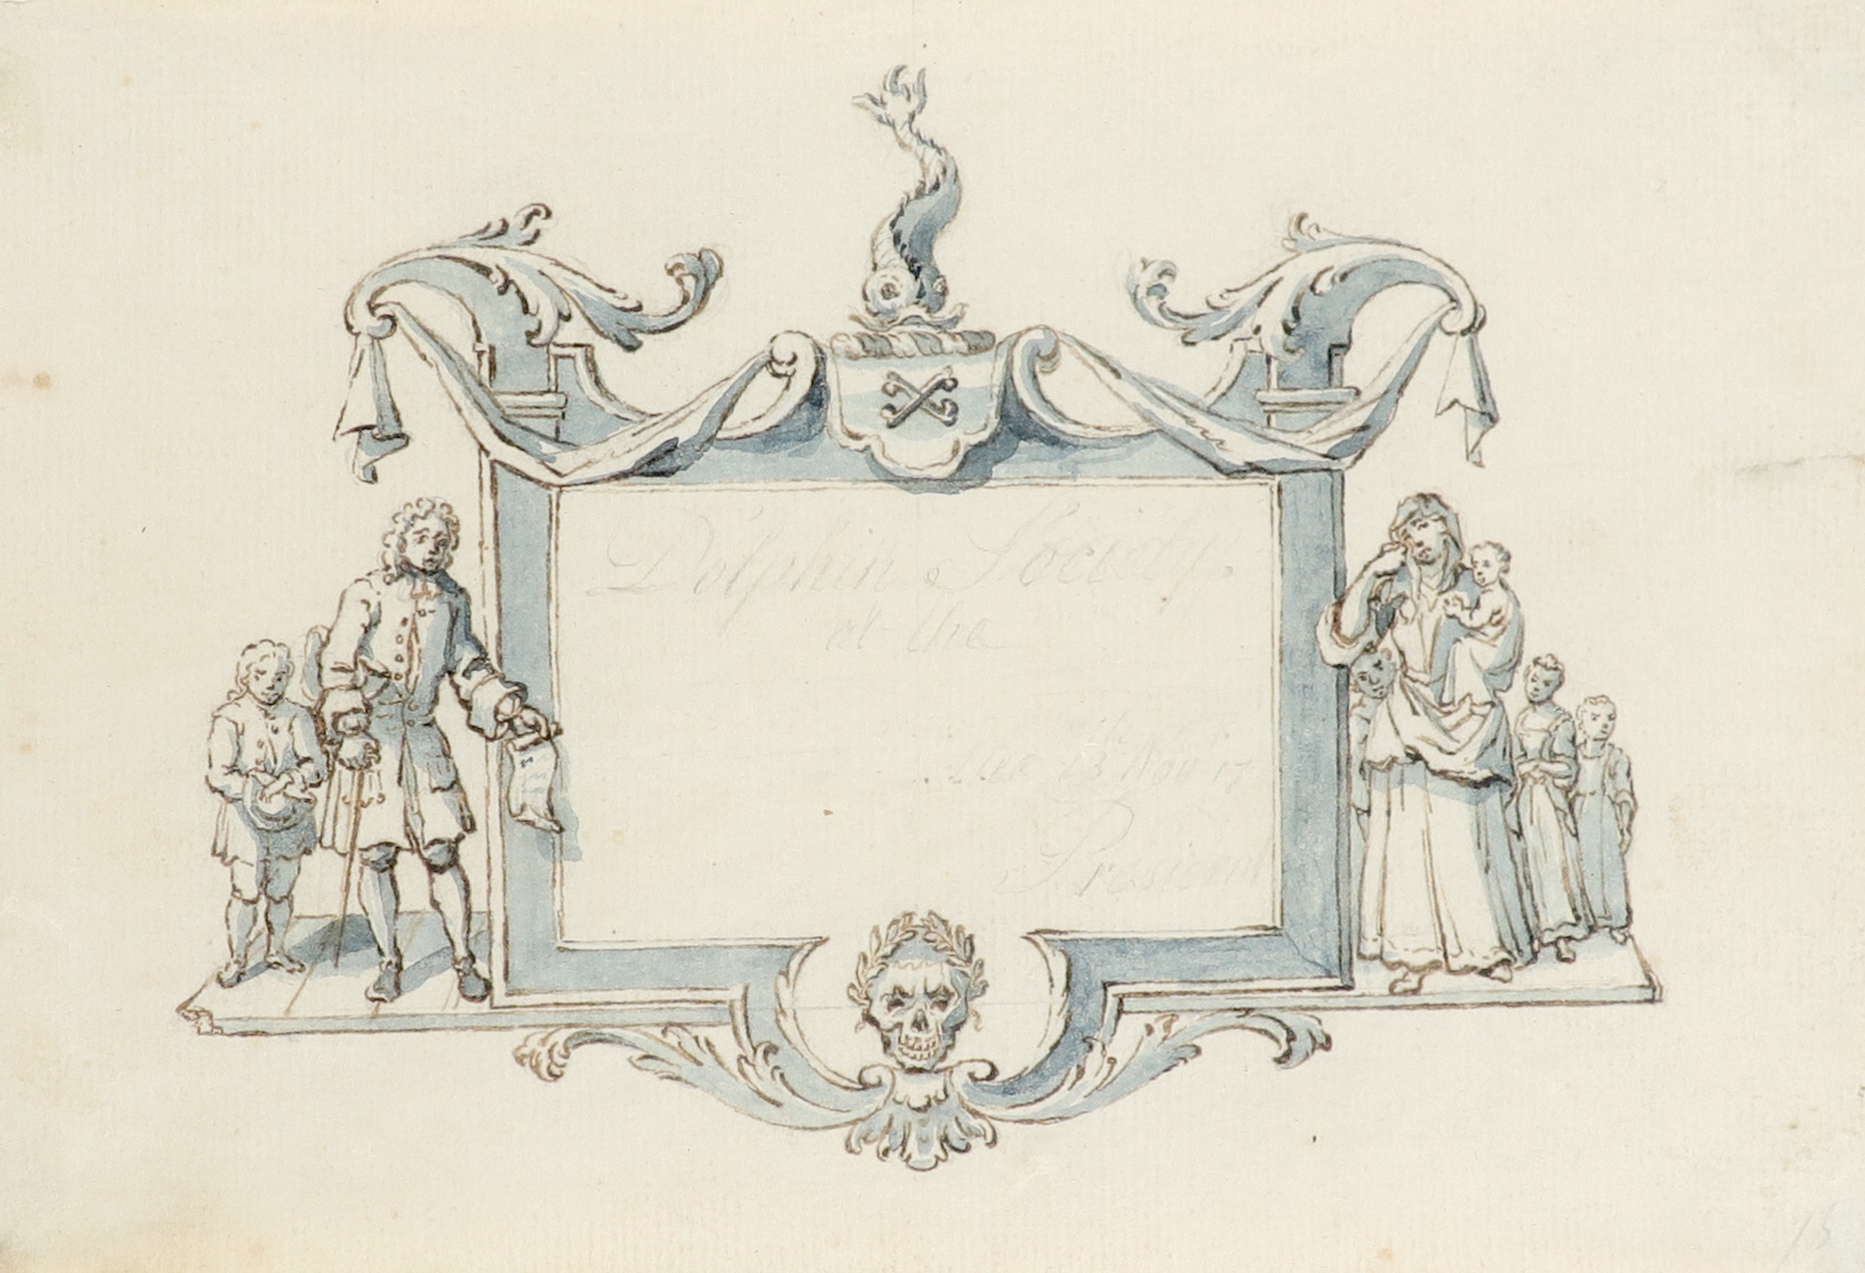 Dolphin Society
at the
13 Nov. 17
President